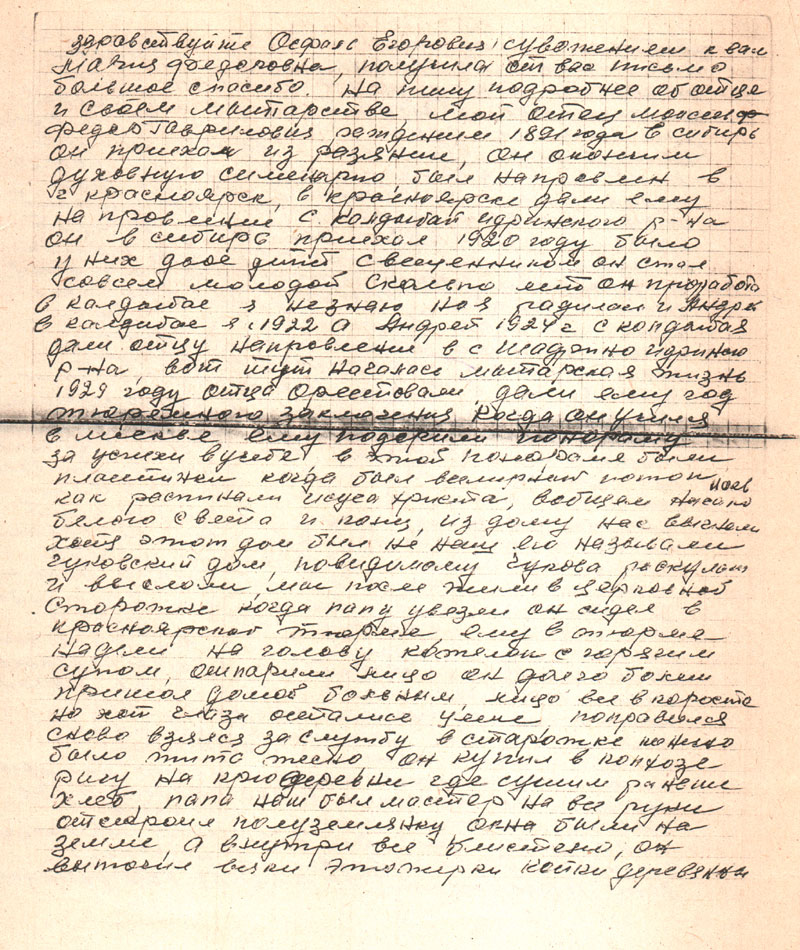 здравствуйте Осфаль Егорович, суважением к вам
Мария Федоровна, получила от вас письмо
большое спасибо. На пишу подробнее об отце
и своем мытарстве, мой отец
Федор Гаврилович рождением 1891 года в сибирь
он приехал из рязани, он окончил
духовную семенарию, был направлен в
г красноярск, в красноярске дали ему
на провление с. Колдыбай идринского р-на
он в сибирь приехал 1920 году было
у них двое детей свещенником он стал
совсем молодой Сколько лет он проработа
в колдыбае я незнаю но я радилас и Андрей
в колдыбае я с 1922 а Андрей 1924 г с колдыбая
дали отцу направление в с идринско
р-на, вот тут началась мытарская жизнь
1929 году отца орестовали, дали ему год
тюремного заключения когда он учился
в москве ему подарили понораму
за успехи в учебе в этой понораме были
пластинки когда был всемирный потоп
как распинали исуса христа, вобщем начало
белого света и конц, из дому нас выгнали
хотя этот дом был не наш его называли
гуковский дом, повидимому гукова роскулач
и выслали, мы после жили в церковной
сторожке когда папу увезли он сидел в
красноярской тюрме, ему в тюрме
надели на голову котелок с горячим
супом, отпарили лицо он долго болел
пришол домой больным, лицо все в коросте
но хот глаза осталис целы, поправился
снова взялся за службу в старожке
было жить тесно он купил в колхозе
ригу на крю деревни где сушили раньше
хлеб, папа наш был мастер на все руки
отстроил полуземлянку окна были на
земле, а внутри все блистело, он
выточил всяки этожерки койки деревянны